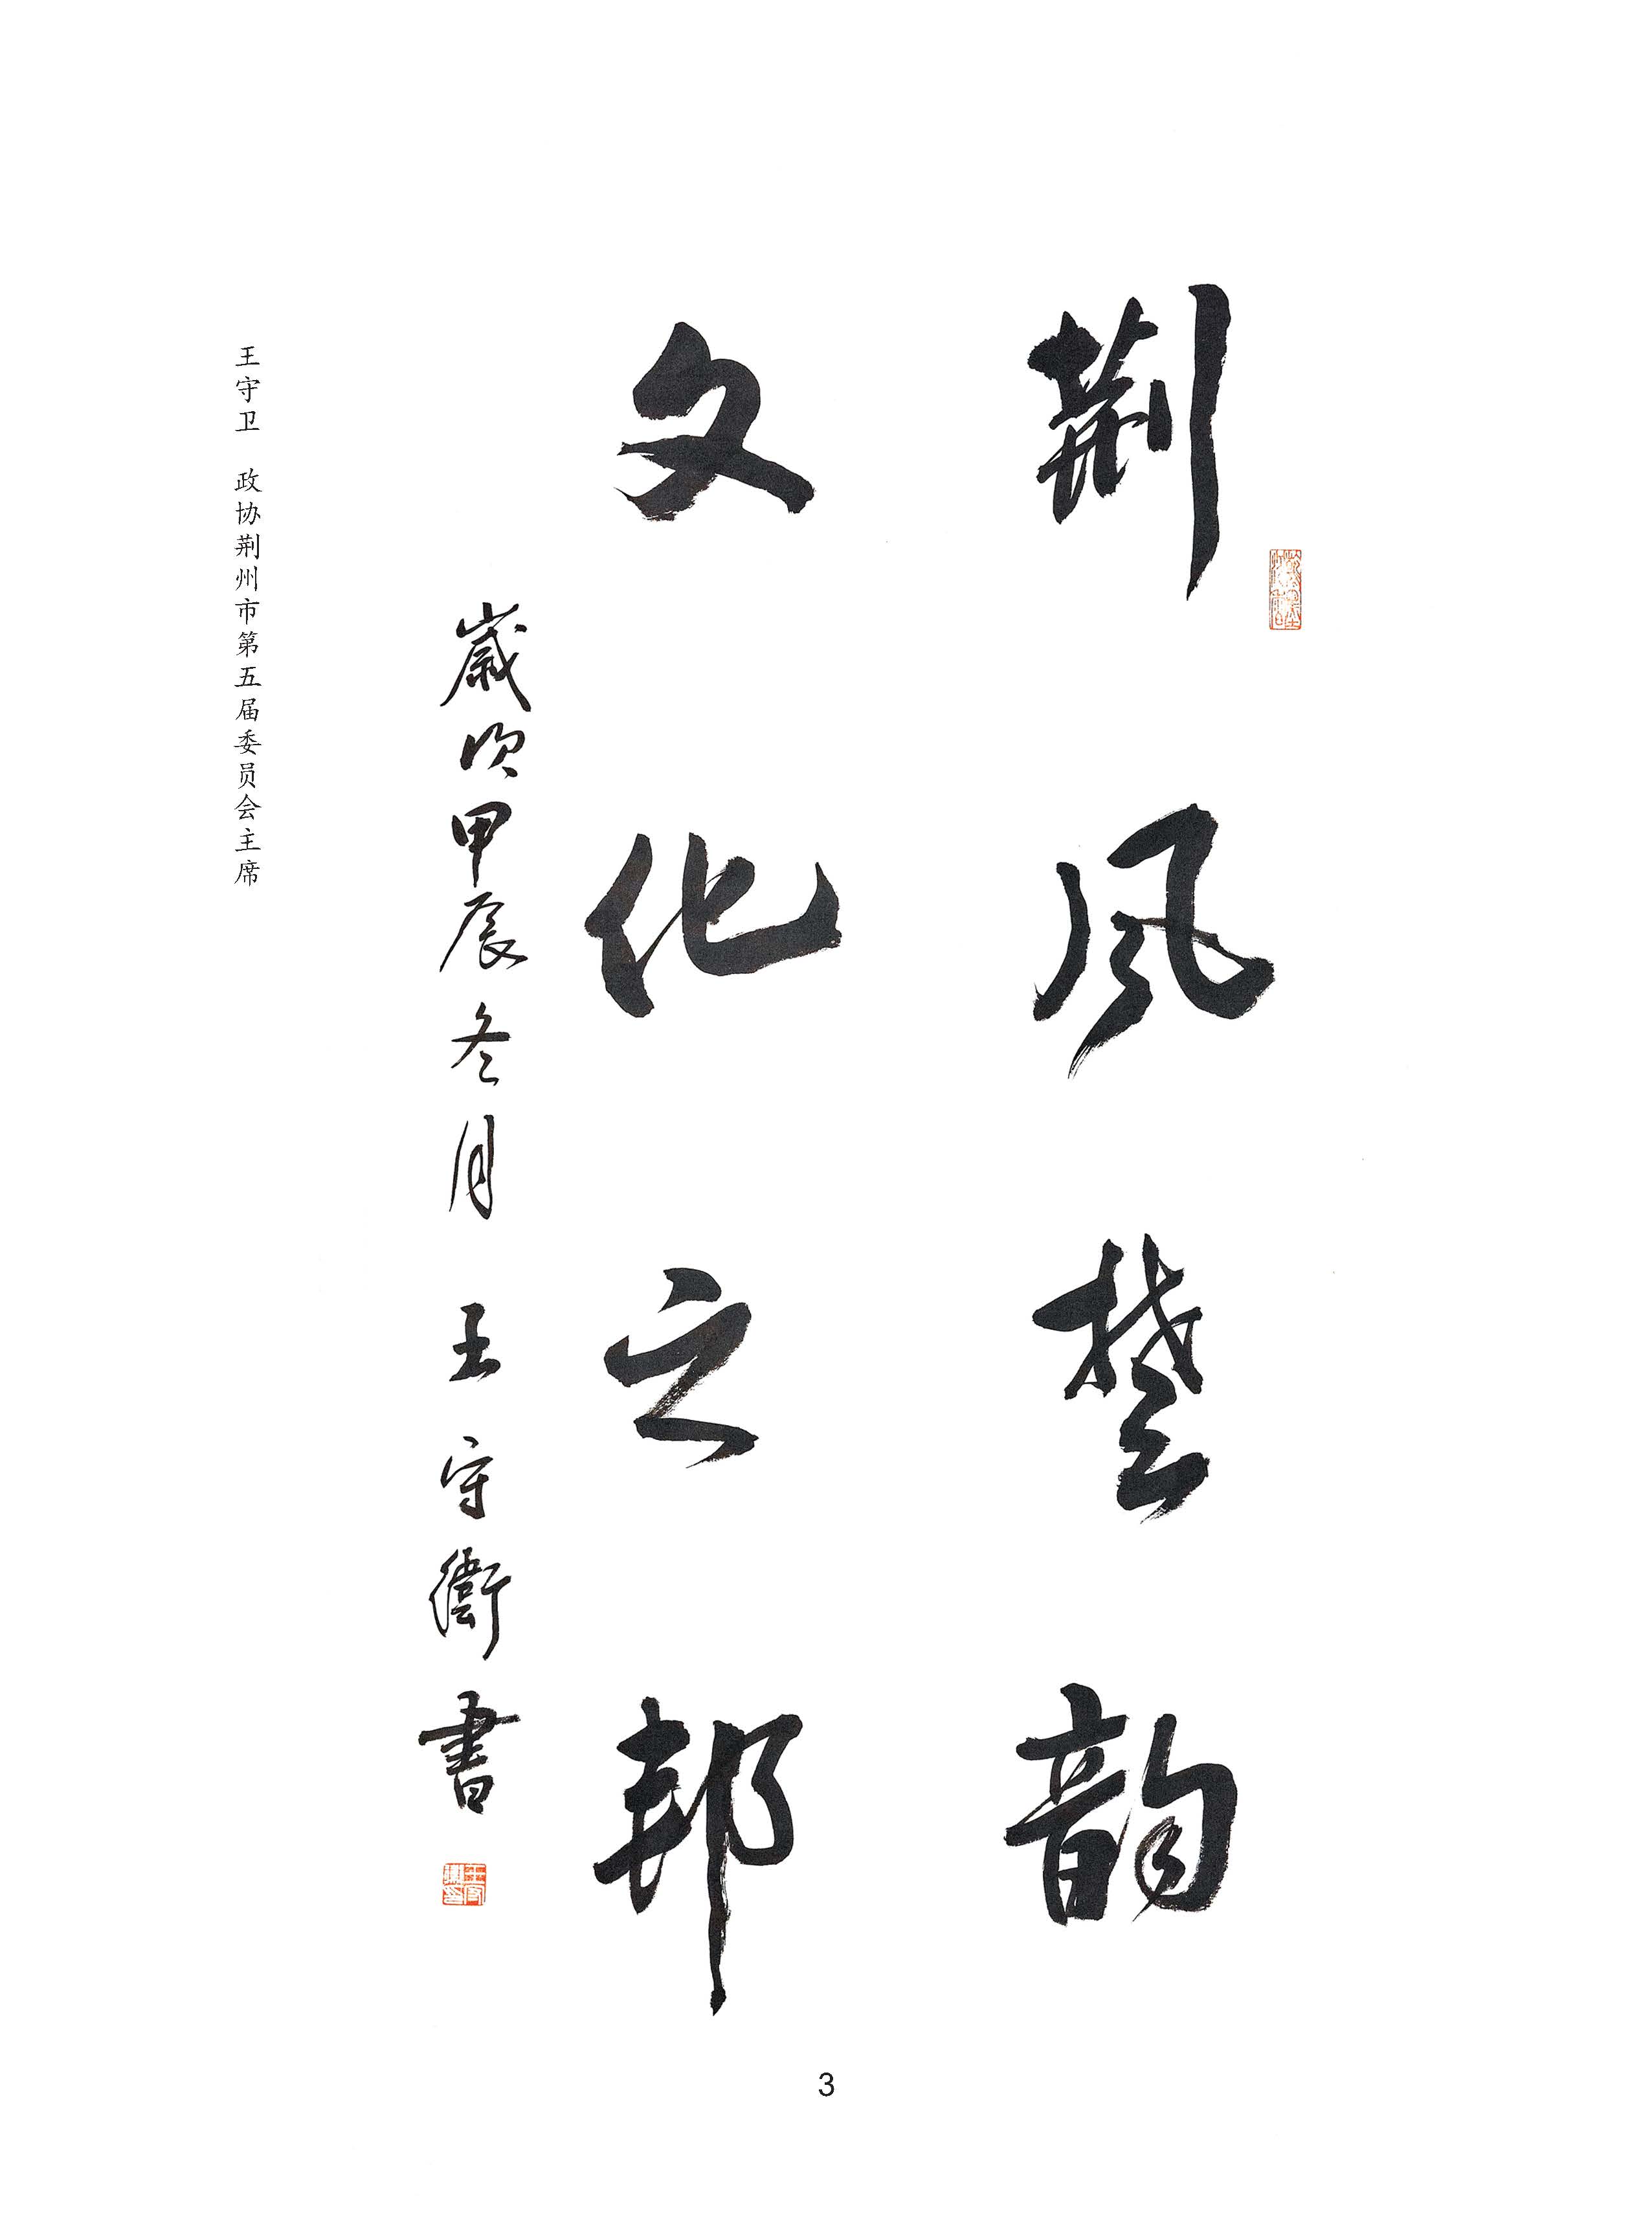 荆风楚韵
文化之邦
歲次甲辰冬月 王守衛書
王守卫 政协荆州市第五届委员会主席
3